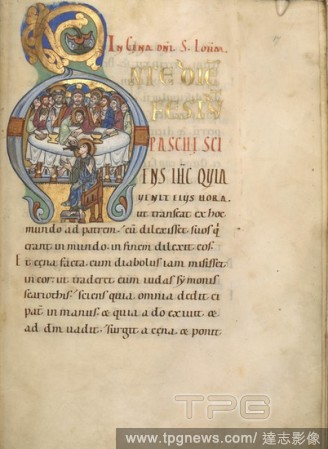 IN CENA DNI S. IOHM.
NTE DIE
FESTV
PASCHI SCI
ENS IHC QUIA
VENIT EIUS HORA
ut transeat ex hoc
mundo ad patrem. cũ dilexisset suos q̃
erant in mundo. in finem dilexit eos.
Et cena facta. cum diabolus iam misisset
in cor. ut traderet eum iudas symonis
scariothis. sciens quia omnia dedit ei
pat̃ in manus. & quia a do exivit &
ad dm vadit. surgit a cena. & ponit
TPG
www.tpgnews.com/達志影像